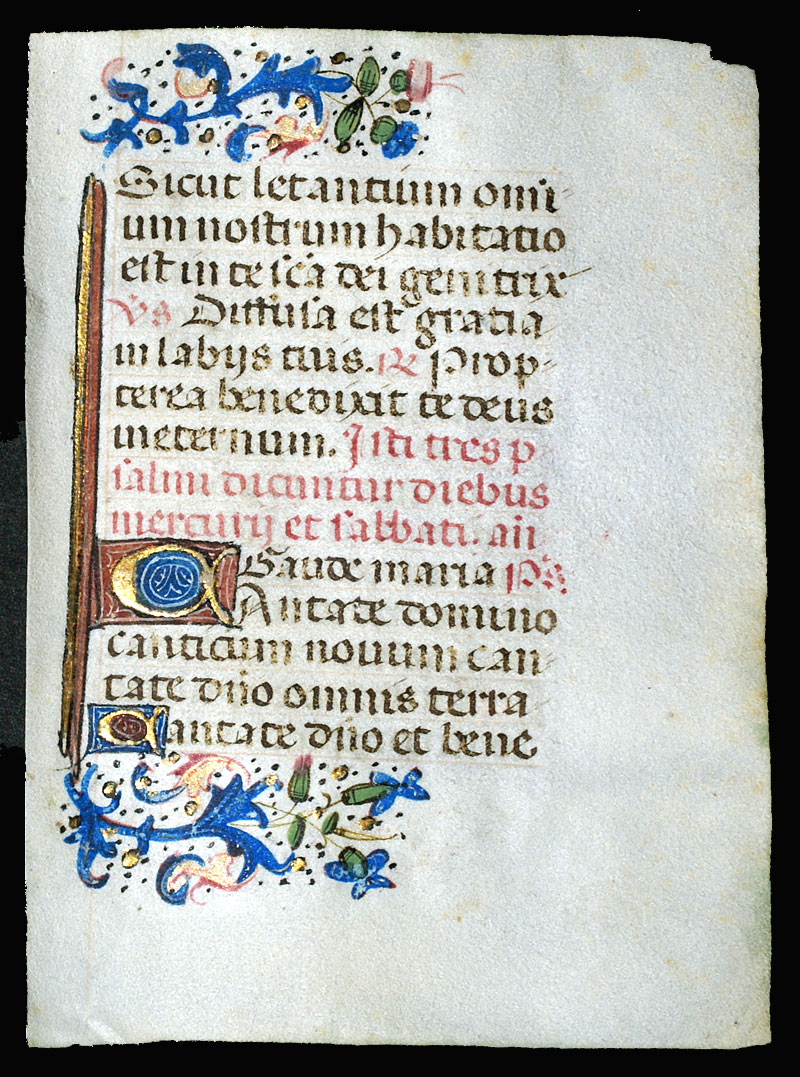 Sicut letantium omi-
um nostrum habitatio
est in te sca dei genitrix
Vs Diffusa est gratia
in labijs tuis. R Prop-
terea benedixit te deus
in eternum. Isti tres p
salmi dicuntur diebus
mercurij et sabbati. an
Gaude maria Ps
CAntate domino
canticum novum can-
tate dno omnis terra
Cantate dno et bene